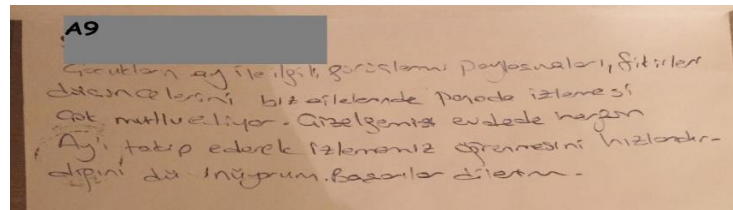 A9
Çocukların ay ile ilgili görüşlerini paylaşmaları, fikirleri
düşüncelerini biz ailelerinde panoda izlemesi
çok mutlu ediyor. Çizelgemizi evdede hergün
Ay'ı takip ederek izlememiz öğrenmesini hızlandır-
dığını düşünüyorum. Başarılar dilerim.